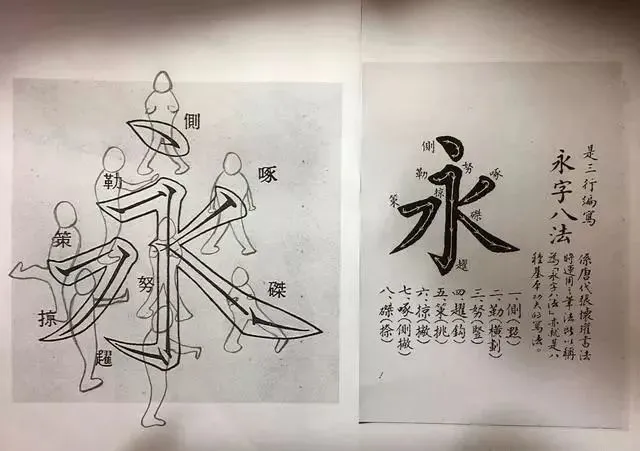 側
勒
啄
策
努
掠
磔
趯
是三行編寫
永字八法
係唐代張懷瓘書法
時運用之筆法皆以稱
為「永字八法」亦就是八
種基本功夫的寫法。
永
側
努
啄
勒
掠
策
磔
趯
一、側(點)
二、勒(橫劃)
三、努(豎)
四、趯(鈎)
五、策(挑)
六、掠(撇)
七、啄(側撇)
八、磔(捺)